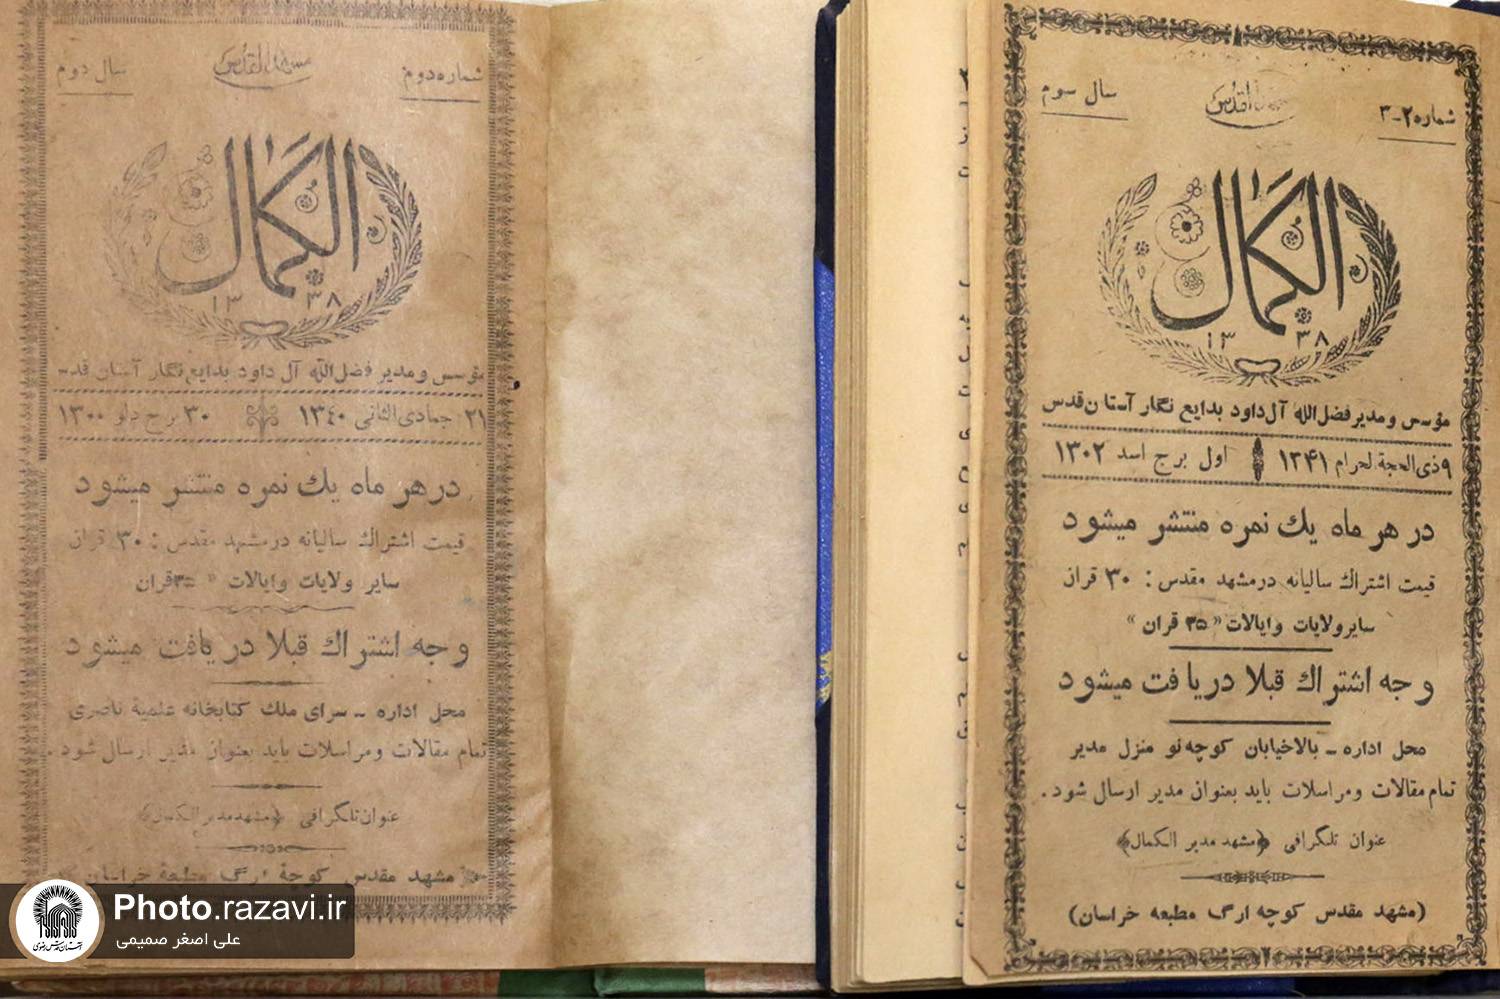 شماره ۲-۳
سال سوم
الکمال
۱۳۳۸
مؤسس و مدیر فضل‌الله آل داود بدایع نگار آستان قدس
۹ ذی‌الحجة لحرام ۱۳۴۱ اول برج اسد ۱۳۰۲
در هر ماه یك نمره منتشر میشود
قیمت اشتراك سالیانه در مشهد مقدس : ۳۰ قران
سایر ولایات و ایالات « ۳۵ قران »
وجه اشتراك قبلا دریافت میشود
محل اداره ـ بالاخیابان کوچه نو منزل مدیر
تمام مقالات ومراسلات باید بعنوان مدیر ارسال شود .
عنوان تلگرافی ﴿مشهد مدیر الکمال﴾
(مشهد مقدس کوچه ارگ مطبعه خراسان)
شماره دوم
سال دوم
الکمال
۱۳۳۸
مؤسس و مدیر فضل‌الله آل داود بدایع نگار آستان قدس
۲۱ جمادی‌الثانی ۱۳٤۰ ۳۰ برج دلو ۱۳۰۰
در هر ماه یك نمره منتشر میشود
قیمت اشتراك سالیانه در مشهد مقدس : ۳۰ قران
سایر ولایات وایالات « ۳۵ قران
وجه اشتراك قبلا دریافت میشود
محل اداره ـ سرای ملك کتابخانه علمیهٔ ناصری
تمام مقالات ومراسلات باید بعنوان مدیر ارسال شود .
عنوان تلگرافی ﴿مشهد مدیر الکمال﴾
مشهد مقدس کوچهٔ ارگ مطبعهٔ خراسان
Photo.razavi.ir
علی اصغر صمیمی
آستان قدس رضوی